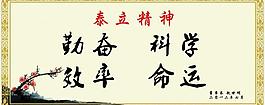 泰立精神
勤奋 科学
效率 命运